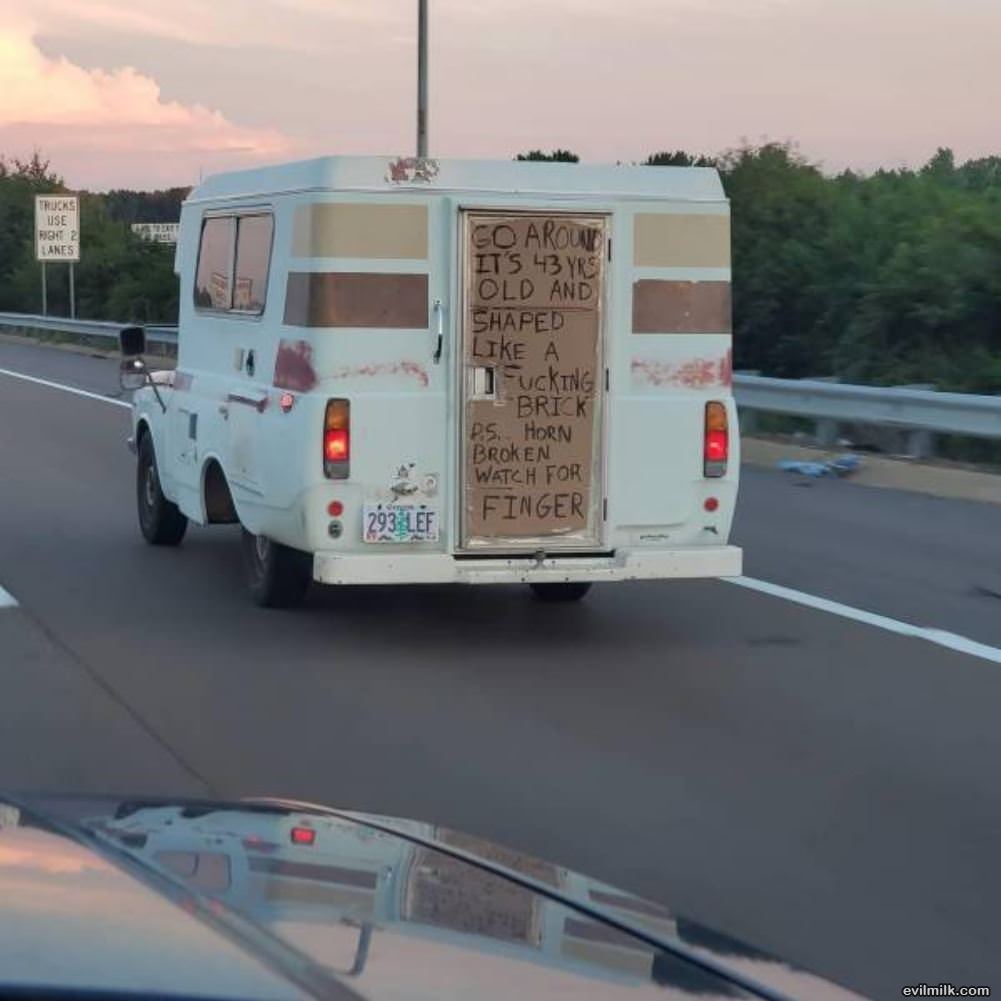 TRUCKS
USE
RIGHT 2
LANES
GO AROUND
IT'S 43 YRS
OLD AND
SHAPED
LIKE A
FUCKING
BRICK
P.S.. HORN
BROKEN
WATCH FOR
FINGER
Oregon
293 LEF
evilmilk.com